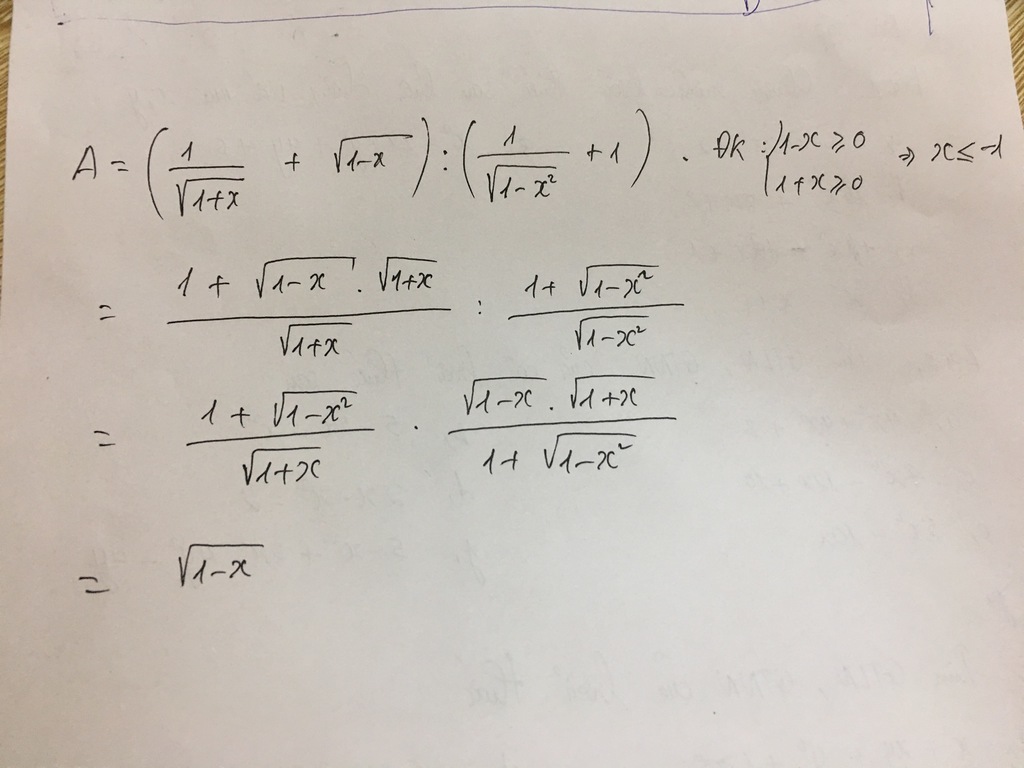 A = (1/√(1+x) + √(1-x)) : (1/√(1-x²) + 1) . ĐK : { 1-x ≥ 0 ⇒ x ≤ -1
1+x ≥ 0
= (1 + √(1-x) . √(1+x))/√(1+x) : (1 + √(1-x²))/√(1-x²)
= (1 + √(1-x²))/√(1+x) . (√(1-x) . √(1+x))/(1 + √(1-x²))
= √(1-x)